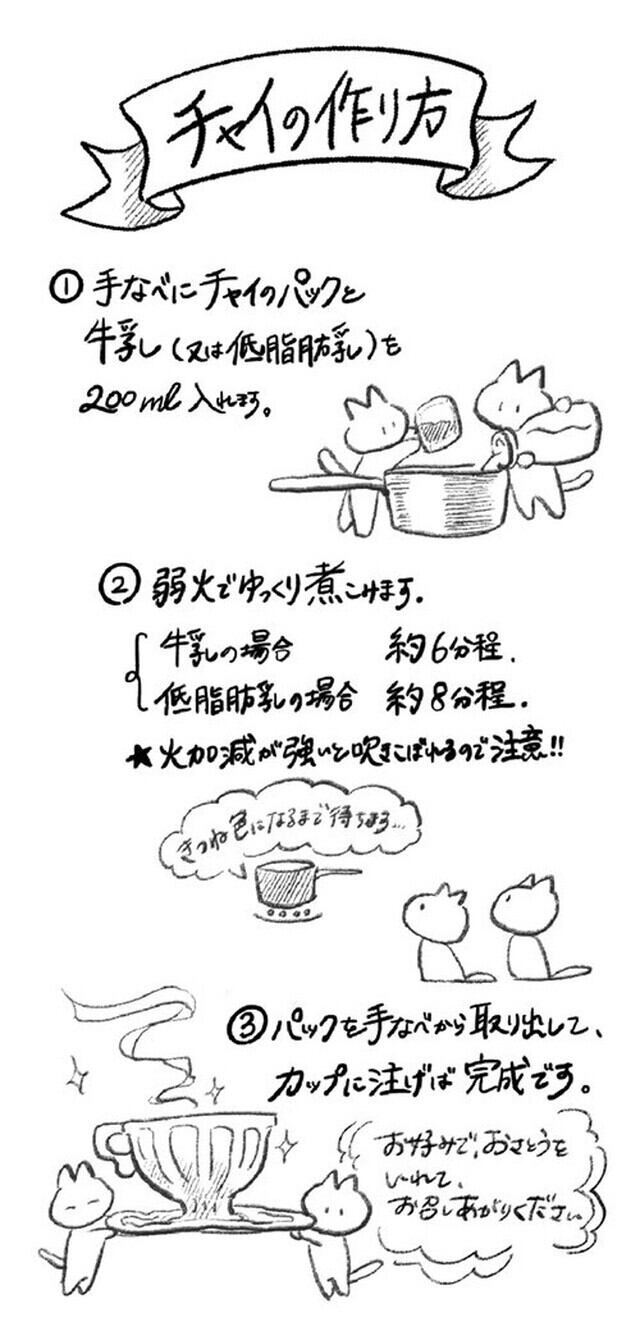 チャイの作り方
① 手なべにチャイのパックと
牛乳(又は低脂肪乳)を
200ml入れます。
② 弱火でゆっくり煮こみます.
牛乳の場合 約6分程.
低脂肪乳の場合 約8分程.
★火加減が強いと吹きこぼれるので注意!!
きつね色になるまで待ちます...
③ パックを手なべから取り出して、
カップに注げば完成です。
お好みで、おさとうを
いれて、
お召しあがりください